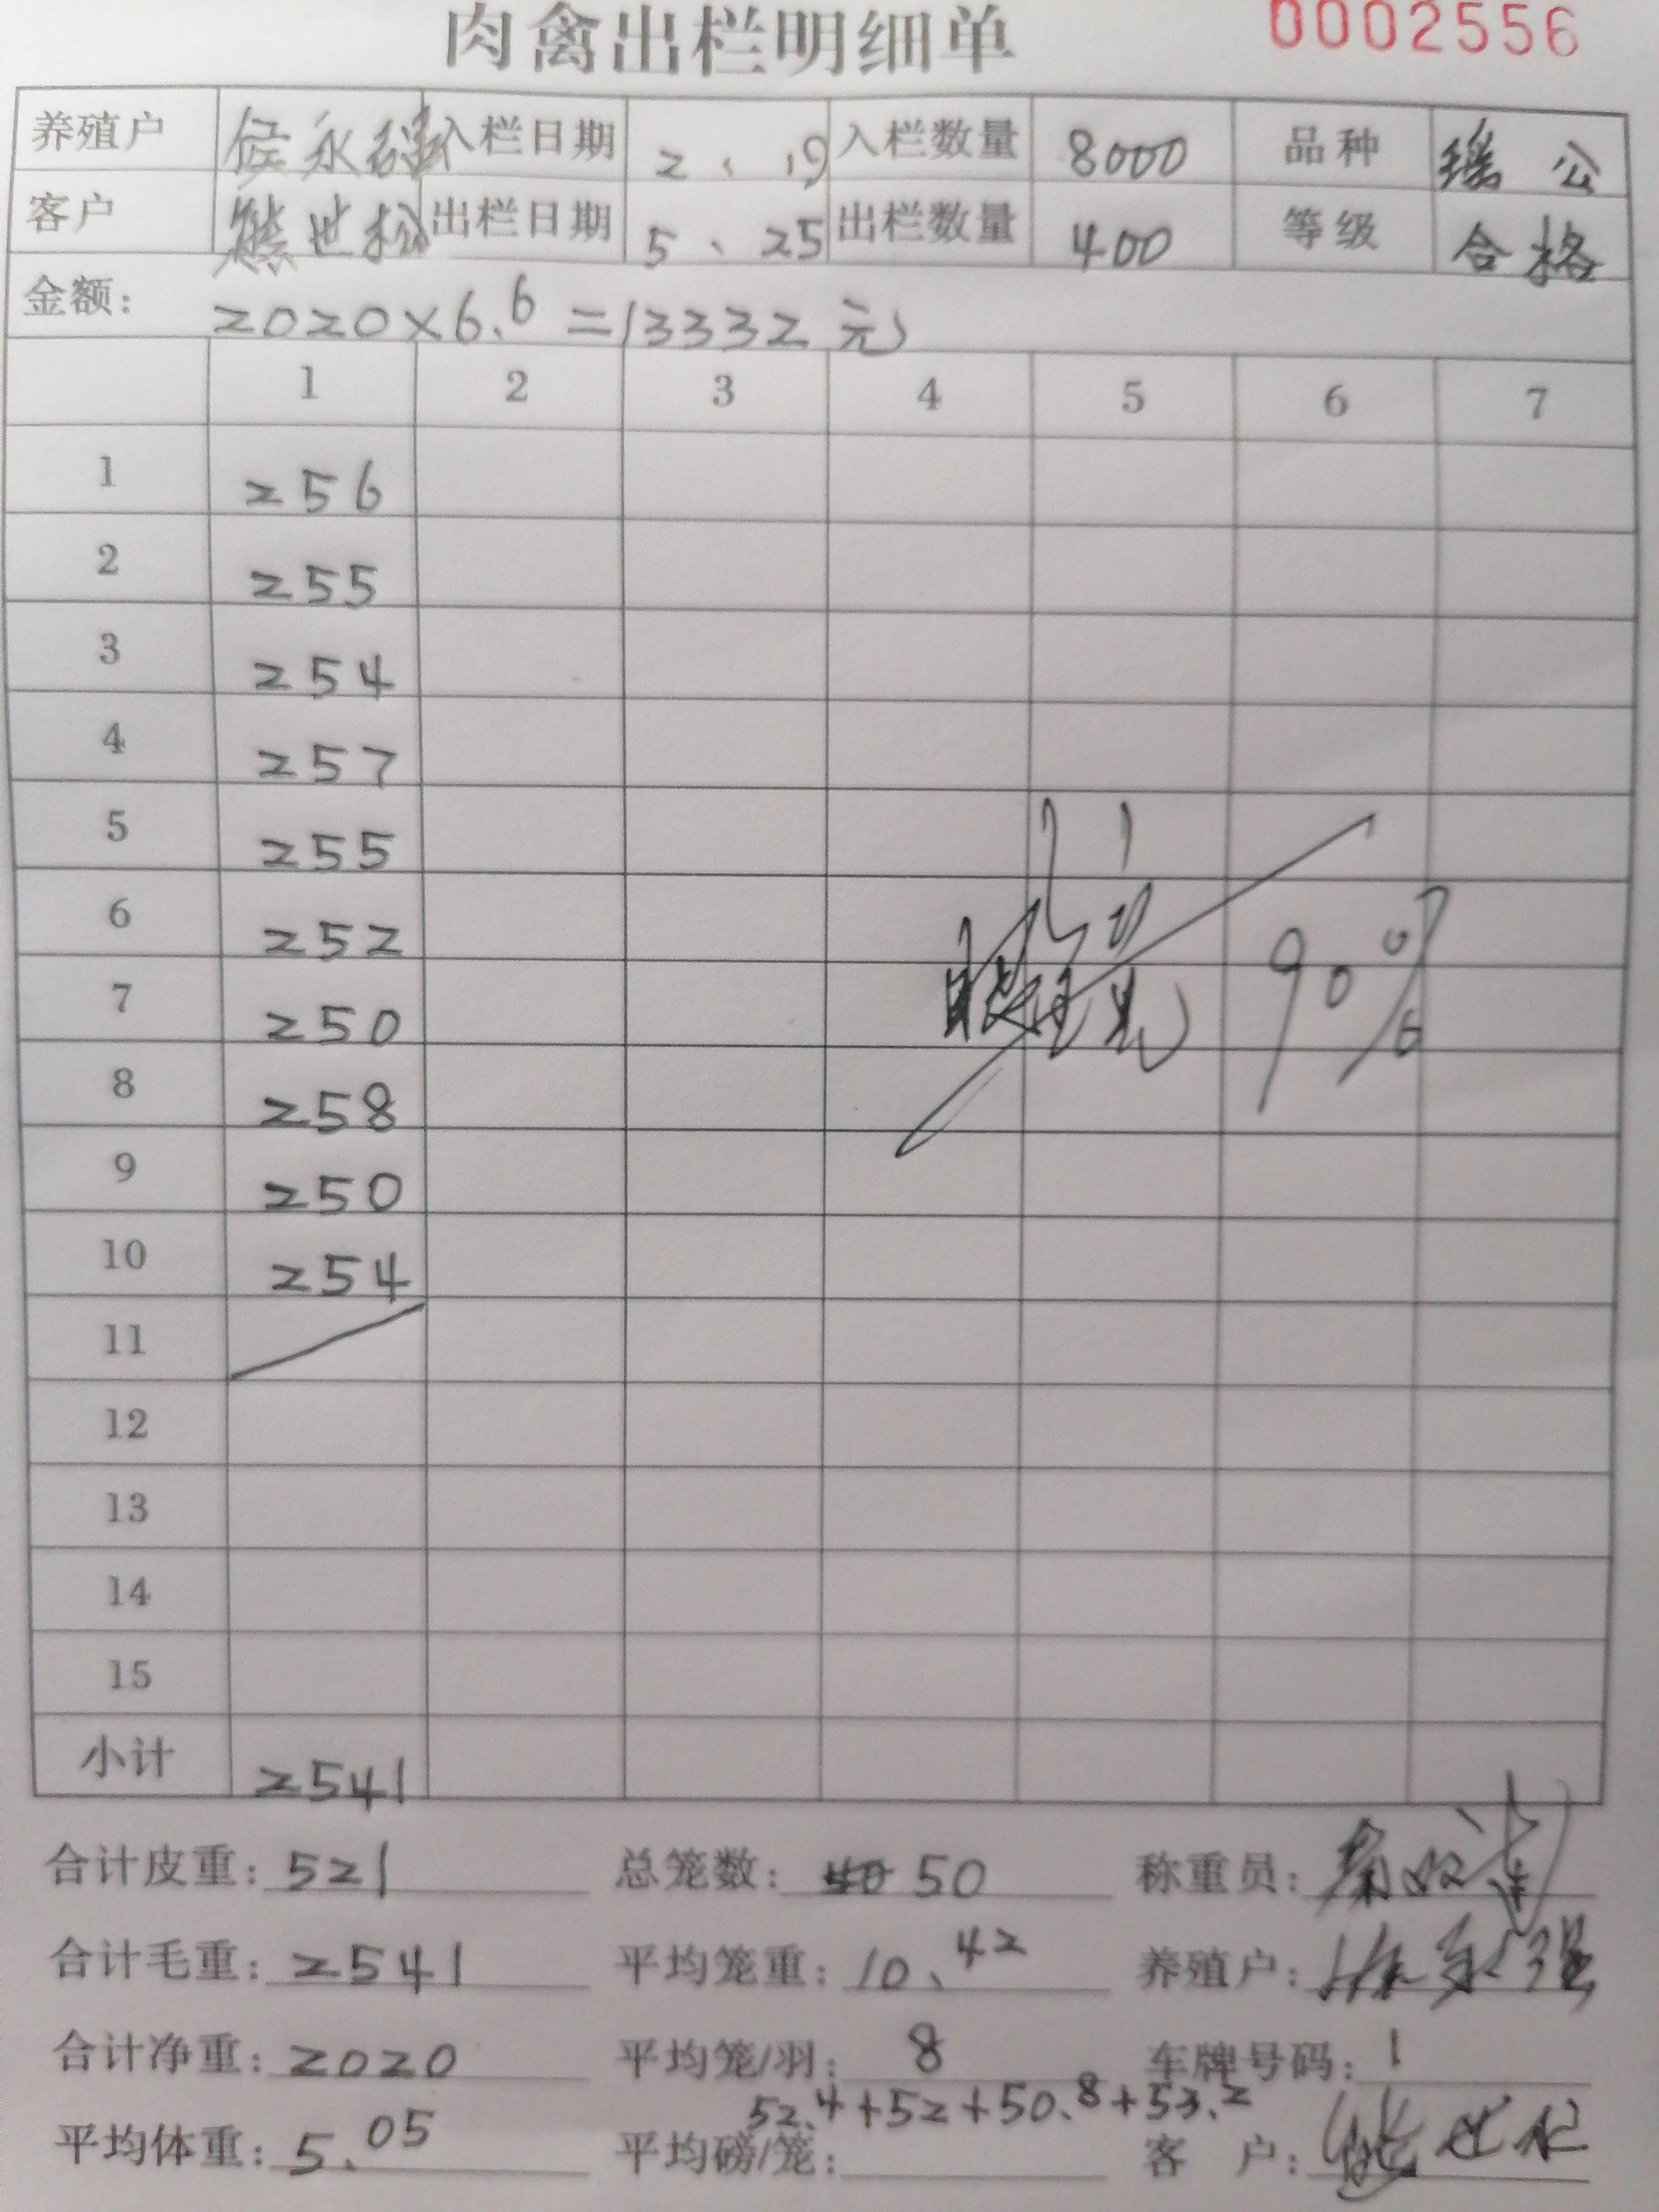 肉禽出栏明细单 0002556
养殖户 侯永强 入栏日期 2、19 入栏数量 8000 品种 瑶公
客户 熊世松 出栏日期 5、25 出栏数量 400 等级 合格
金额: 2020×6.6=13332元
1 2 3 4 5 6 7
1 256
2 255
3 254
4 257
5 255
6 252
7 250
8 258
9 250
10 254
11
12
13
14
15
90%
小计 2541
合计皮重: 521 总笼数: 50 称重员:
合计毛重: 2541 平均笼重: 10.42 养殖户: 侯永强
合计净重: 2020 平均笼/羽: 8 车牌号码: 1
52.4+52+50.8+53.2
平均体重: 5.05 平均磅/笼: 客 户: 熊世松